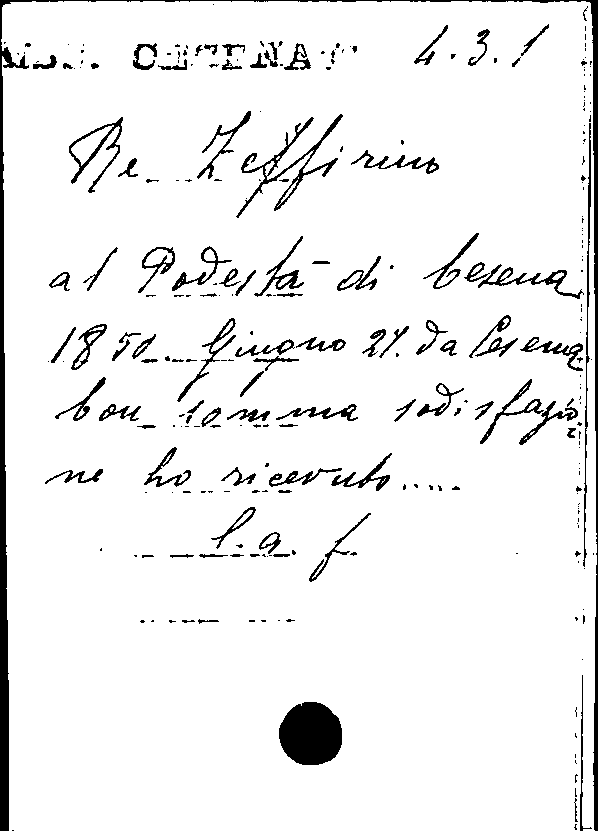 MSS. CESENATI 4.3.1
Re Zeffirino
al Podestà di Cesena
1850. Giugno 27. da Cesena
Con somma sodisfazio=
ne ho ricevuto.....
l. a. f.